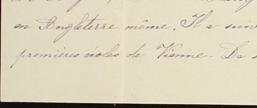 en Angleterre même. Il a suivi
premières écoles de Vienne. De